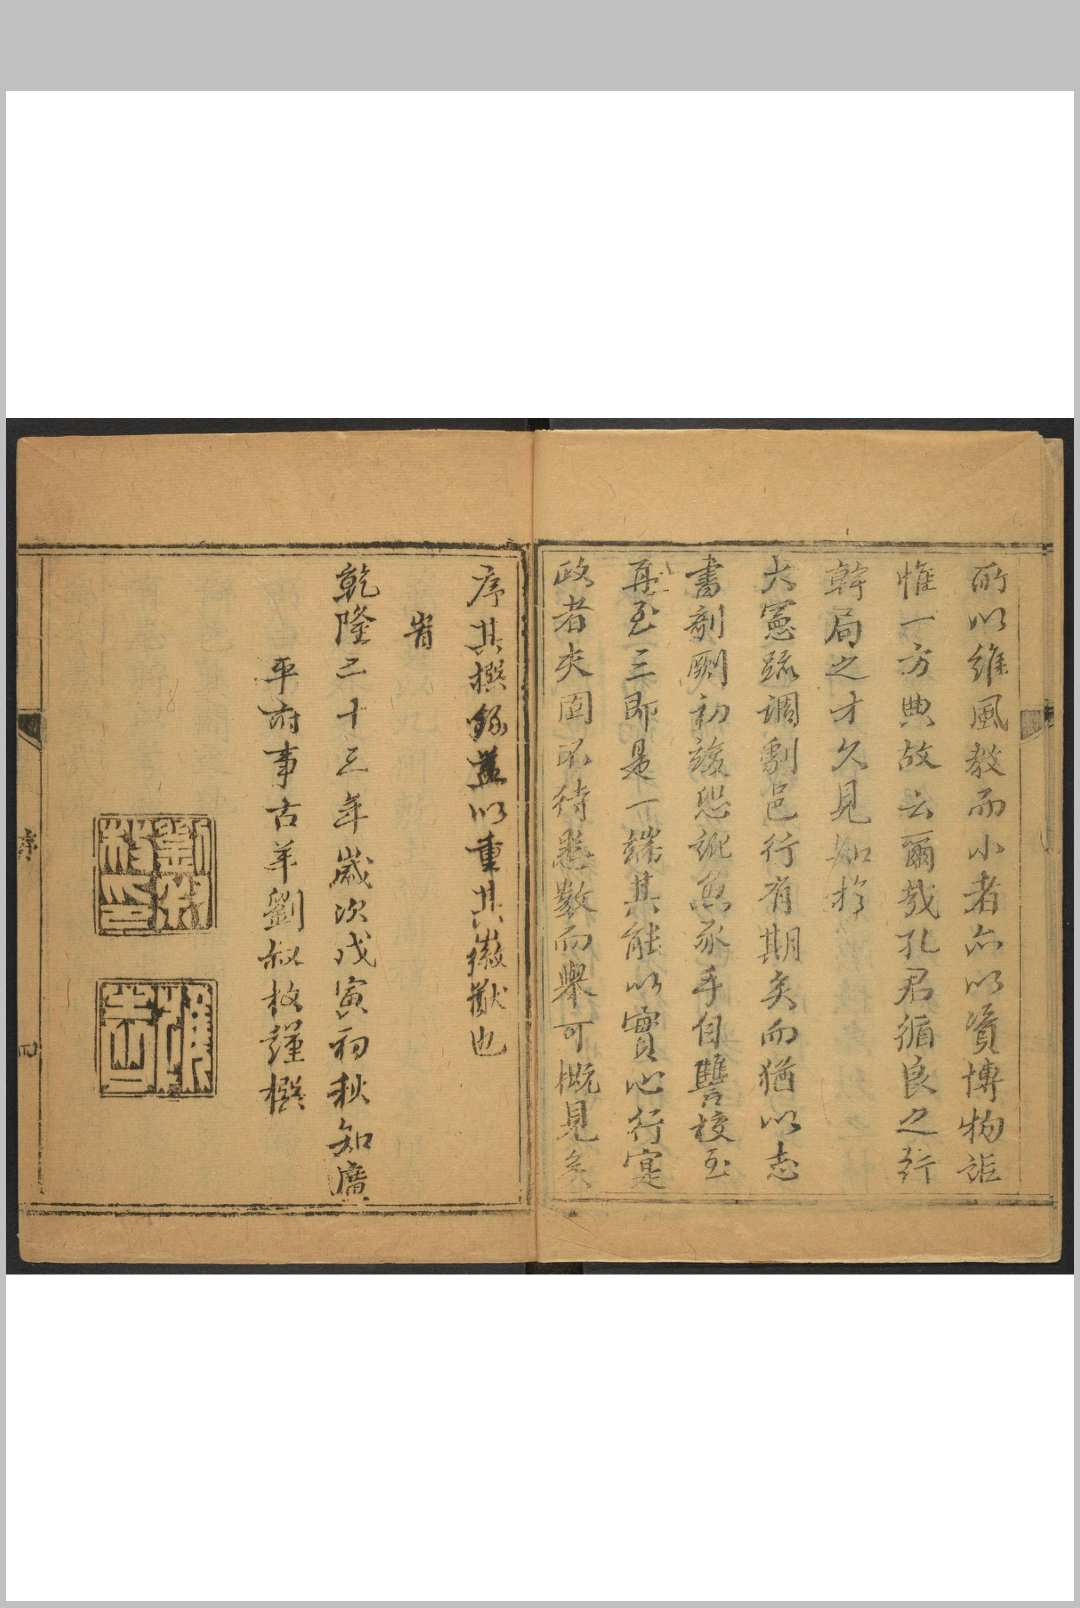 所以維風教而小者亦以資博物詎
惟一方典故云爾哉孔君循良之行
幹局之才久見知於
大憲疏調劇邑行有期矣而猶以志
書剞劂初竣恐訛魚豕手自讐校至
再至三即是一端其能以實心行寔
政者夫固不待悉數而舉可概見矣
序其撰錄蓋以重其徽猷也
峕
乾隆二十三年歲次戊寅初秋知廣
平府事古羊劉叔枚謹撰
劉叔枚印
序
四